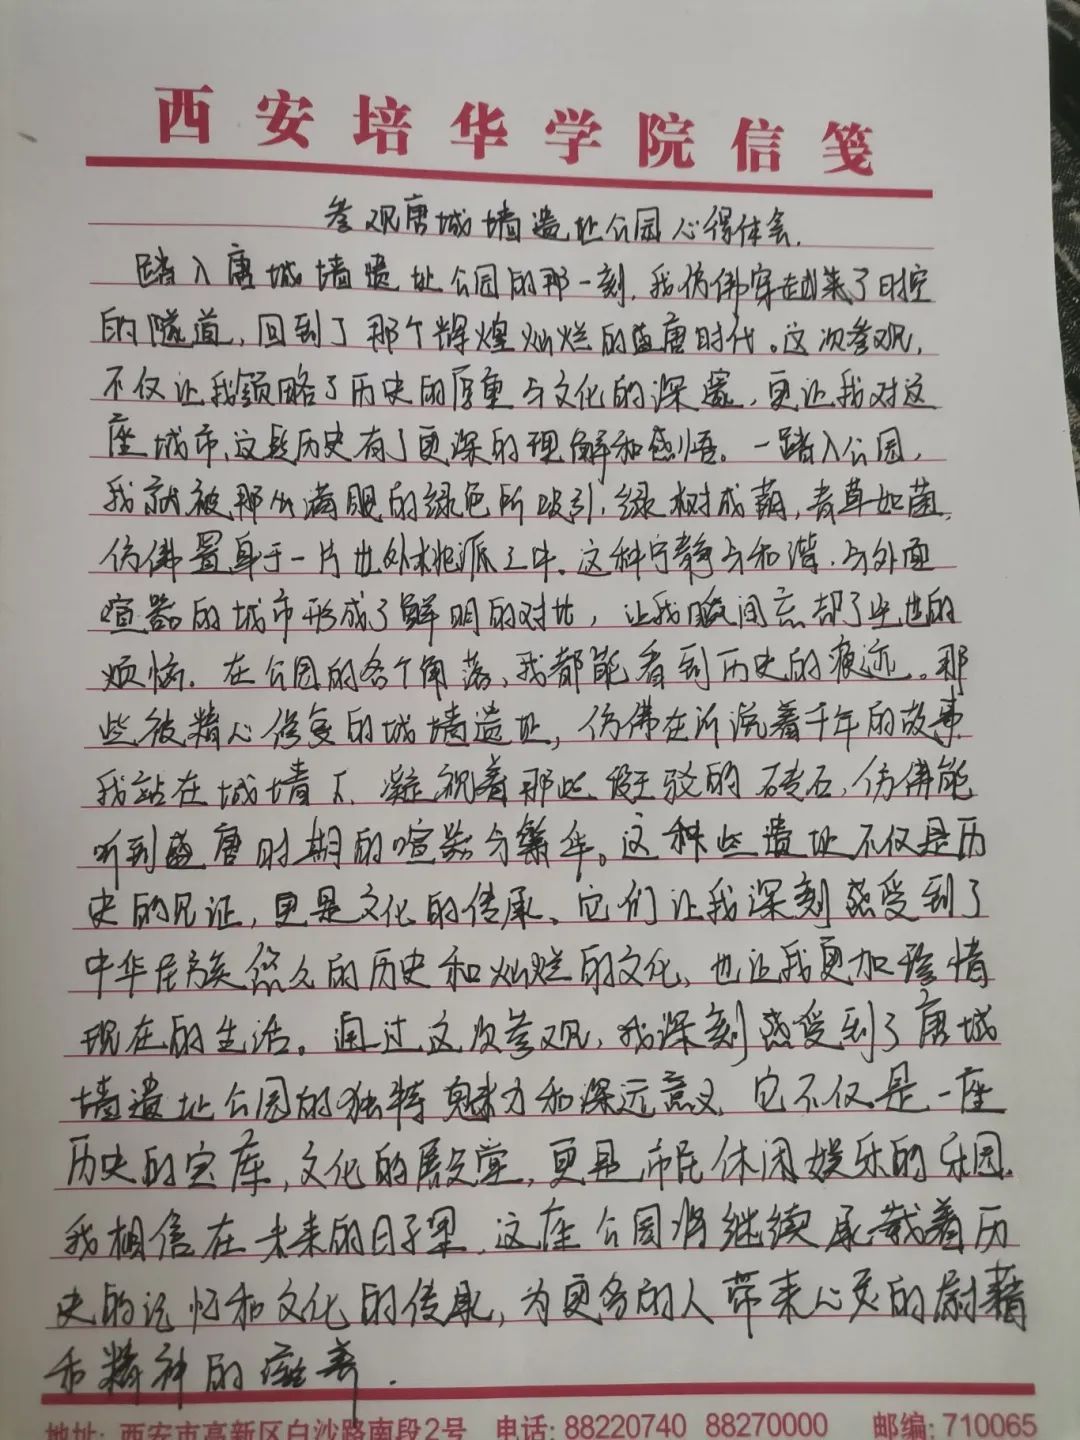 西安培华学院信笺
参观唐城墙遗址公园心得体会.
踏入唐城墙遗址公园的那一刻,我仿佛穿越了时空
的隧道,回到了那个辉煌灿烂的盛唐时代。这次参观,
不仅让我领略了历史的厚重与文化的深邃,更让我对这
座城市、这段历史有了更深的理解和感悟。一踏入公园,
我就被那么满眼的绿色所吸引,绿树成荫,青草如茵,
仿佛置身于一片世外桃源之中。这种宁静与和谐,与外面
喧嚣的城市形成了鲜明的对比,让我瞬间忘却了尘世的
烦恼.在公园的各个角落,我都能看到历史的痕迹。那
些被精心修复的城墙遗址,仿佛在诉说着千年的故事.
我站在城墙下,凝视着那些斑驳的砖石,仿佛能
听到盛唐时期的喧嚣与繁华。这种些遗址不仅是历
史的见证,更是文化的传承。它们让我深刻感受到了
中华民族悠久的历史和灿烂的文化,也让我更加珍惜
现在的生活。通过这次参观,我深刻感受到了唐城
墙遗址公园的独特魅力和深远意义,它不仅是一座
历史的宝库,文化的殿堂,更是市民休闲娱乐的乐园.
我相信在未来的日子里,这座公园将继续承载着历
史的记忆和文化的传承,为更多的人带来心灵的慰藉
和精神的滋养.
地址:西安市高新区白沙路南段2号 电话:88220740 88270000 邮编:710065